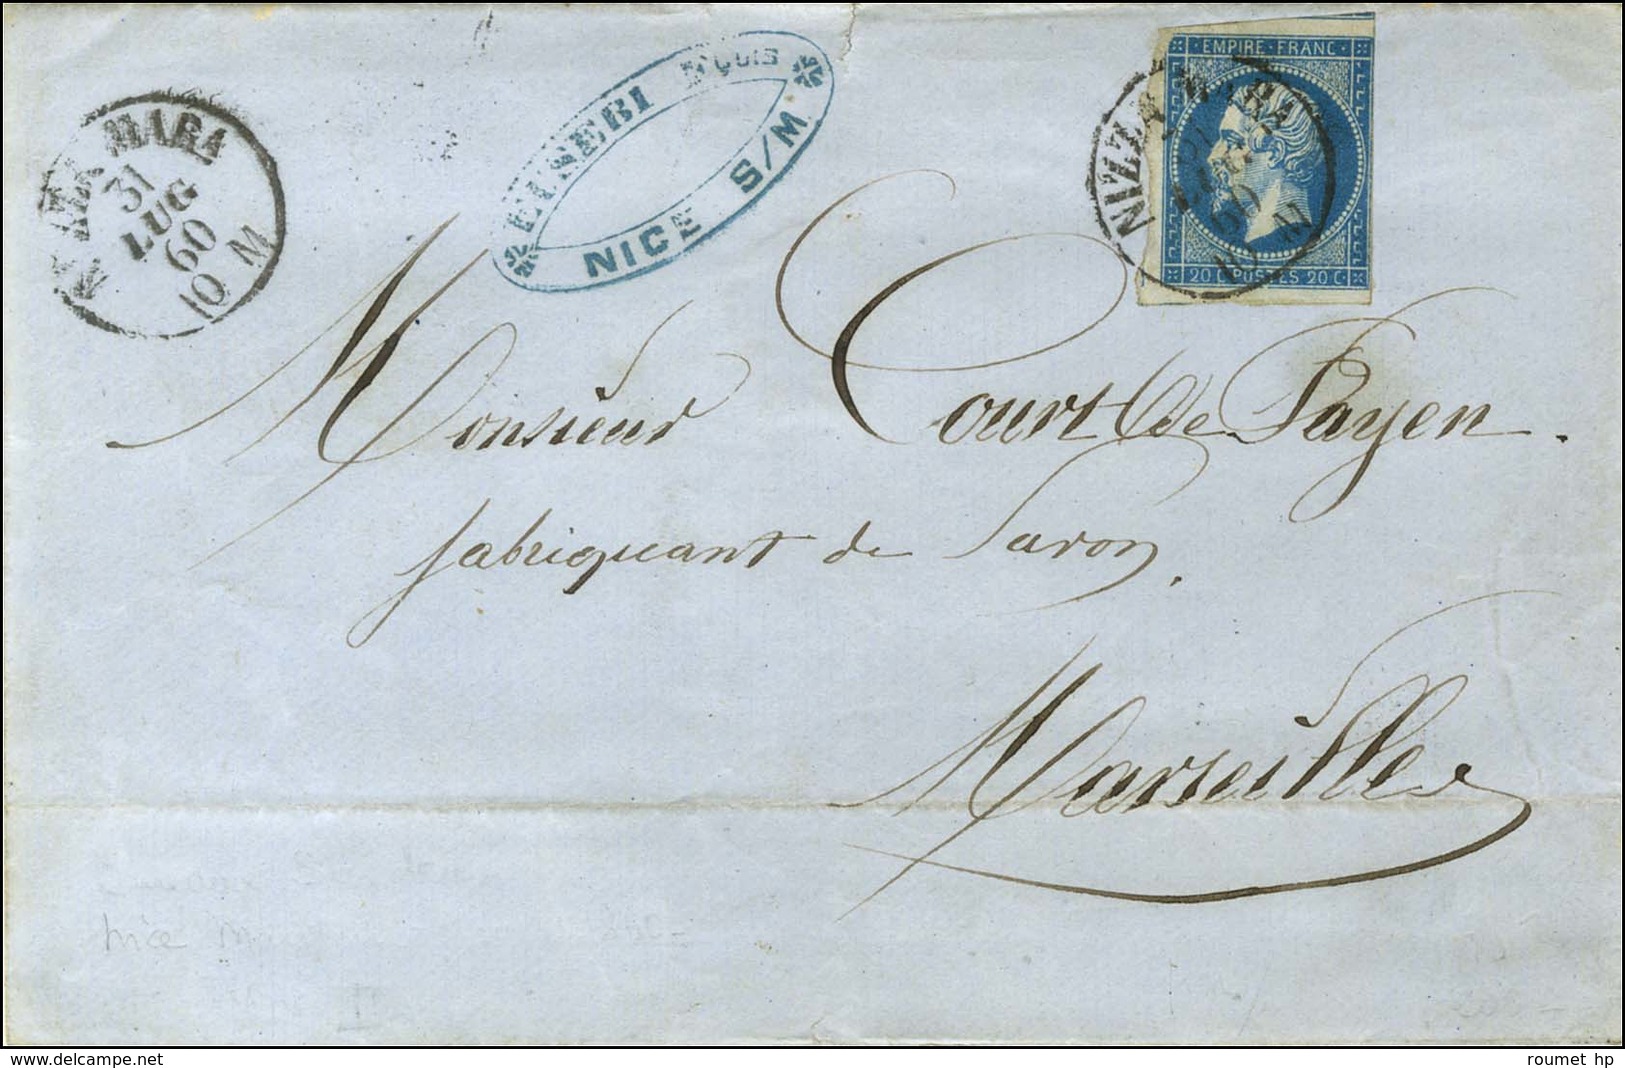 NIZZA MARA
31
LUG
60
10 M
EUSEBI FÇOIS
NICE S/M
EMPIRE · FRANC
20 C POSTES 20 C
NIZZA MARA
31
LUG
60
10 M
Monsieur Court de Payen.
fabriquant de Savon.
Marseille
nice
www.delcampe.net
roumet hp